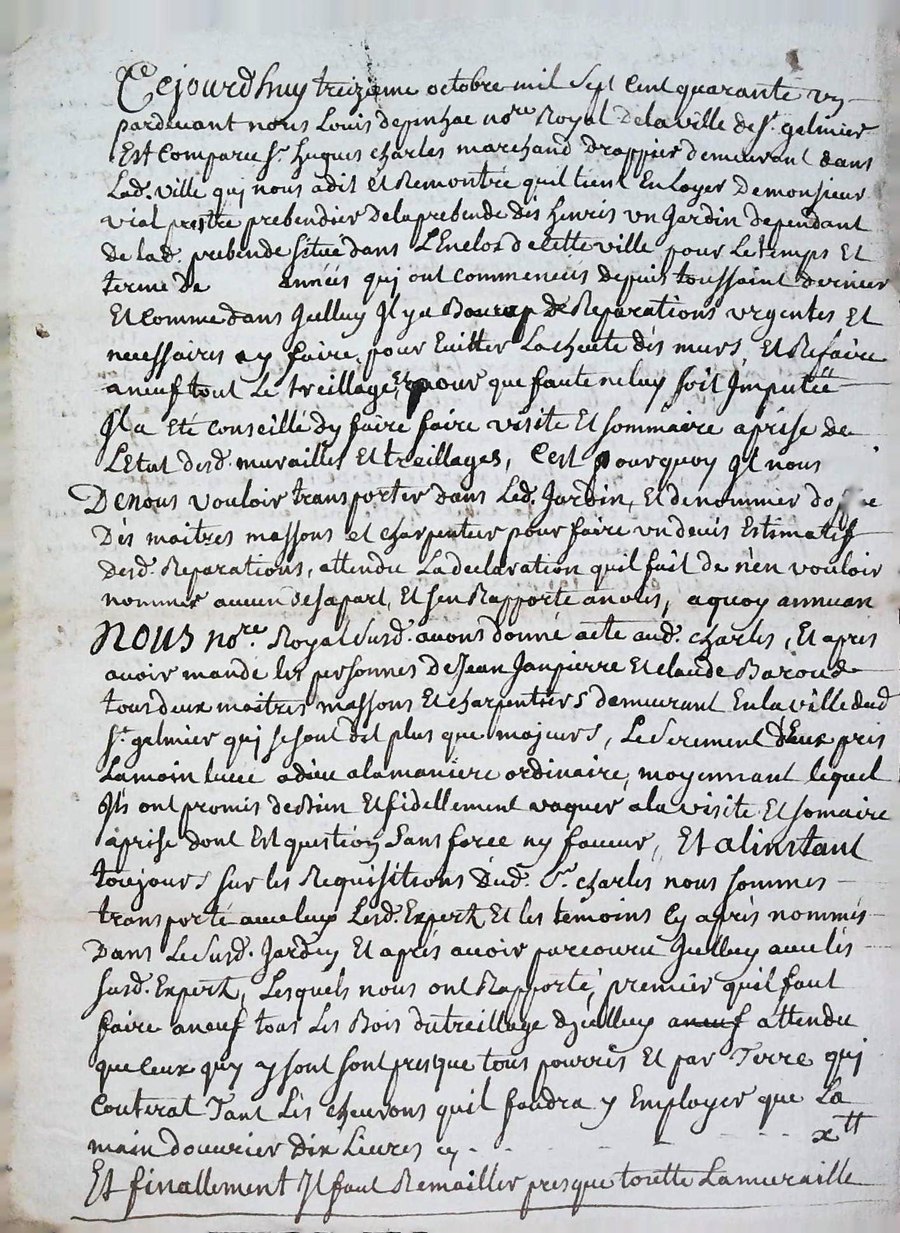 Cejourdhuy treizieme octobre mil sept cent quarante un
pardevant nous Louis depinhac nore Royal dela ville de st. gelmier
Est Comparu sr. hugues charles marchand drappier demeurant dans
Lad. ville quj nous adit et Remontré quil tient En Loyer De monsieur
vial prestre prebendier dela prebende dés henris un Jardin dependant
de lad. prebende situé dans L'Enclos de cette ville pour Le temps Et
terme de années quj ont commencées depuis toussaint dernier
Et comme dans Jcelluy Jl ya Beaucop de Reparations urgentes Et
necessaires ay faire, pour Eviter La cheute dés murs, Et Refaire
aneuf tout Le treillage, Et pour que faute ne luy soit Jmputée
Jl a Eté conseillé dy faire faire visite Et sommaire aprise de
L'Etat desd. murailles Et treillages, C'est pourquoy Jl nous
De nous vouloir transporter dans Led. Jardin, Et de nommer
Dés maitres massons et charpentier pour faire un devis Estimatif
desd. Reparations, attendu La declaration quil fait de n'en vouloir
nommer aucun de sa part, Et s'en Rapporte a nous, a quoy annuan
Nous nore. Royal susd. avons donné acte aud. charles, Et aprés
avoir mandé les personnes De Jean Janpierre Et claude Baroud
tous deux maitres massons Et charpentiers demeurant En la ville dud
st. gelmier quj se sont dit plus que majeurs, Le serement d'Eux pris
La main levee adieu ala maniere ordinaire, moyennant lequel
Jls ont promis de Bien Et fidellement vaquer a la visite Et somaire
aprise dont Est question sans force ny faveur, Et alinstant
toujours sur les Requisitions dud. sr. charles nous sommes
transporté avec luy Lesd. Expertz Et les temoins cy aprés nommés
Dans Le susd. Jardin Et aprés avoir parcouru Jcelluy avec lés
susd. Expertz, Lesquels nous ont Rapporté, premier quil faut
faire aneuf tous Les Bois du treillage djcelluy aneuf attendu
que ceux quy y sont sont presque tous pourris Et par Terre quj
Couterat Tant Lés chevrons quil faudra y Employer que La
main douvrier dix Livres cy - - - - - - xtt
Et finallement Jl faut Remailler presque toutte La muraille